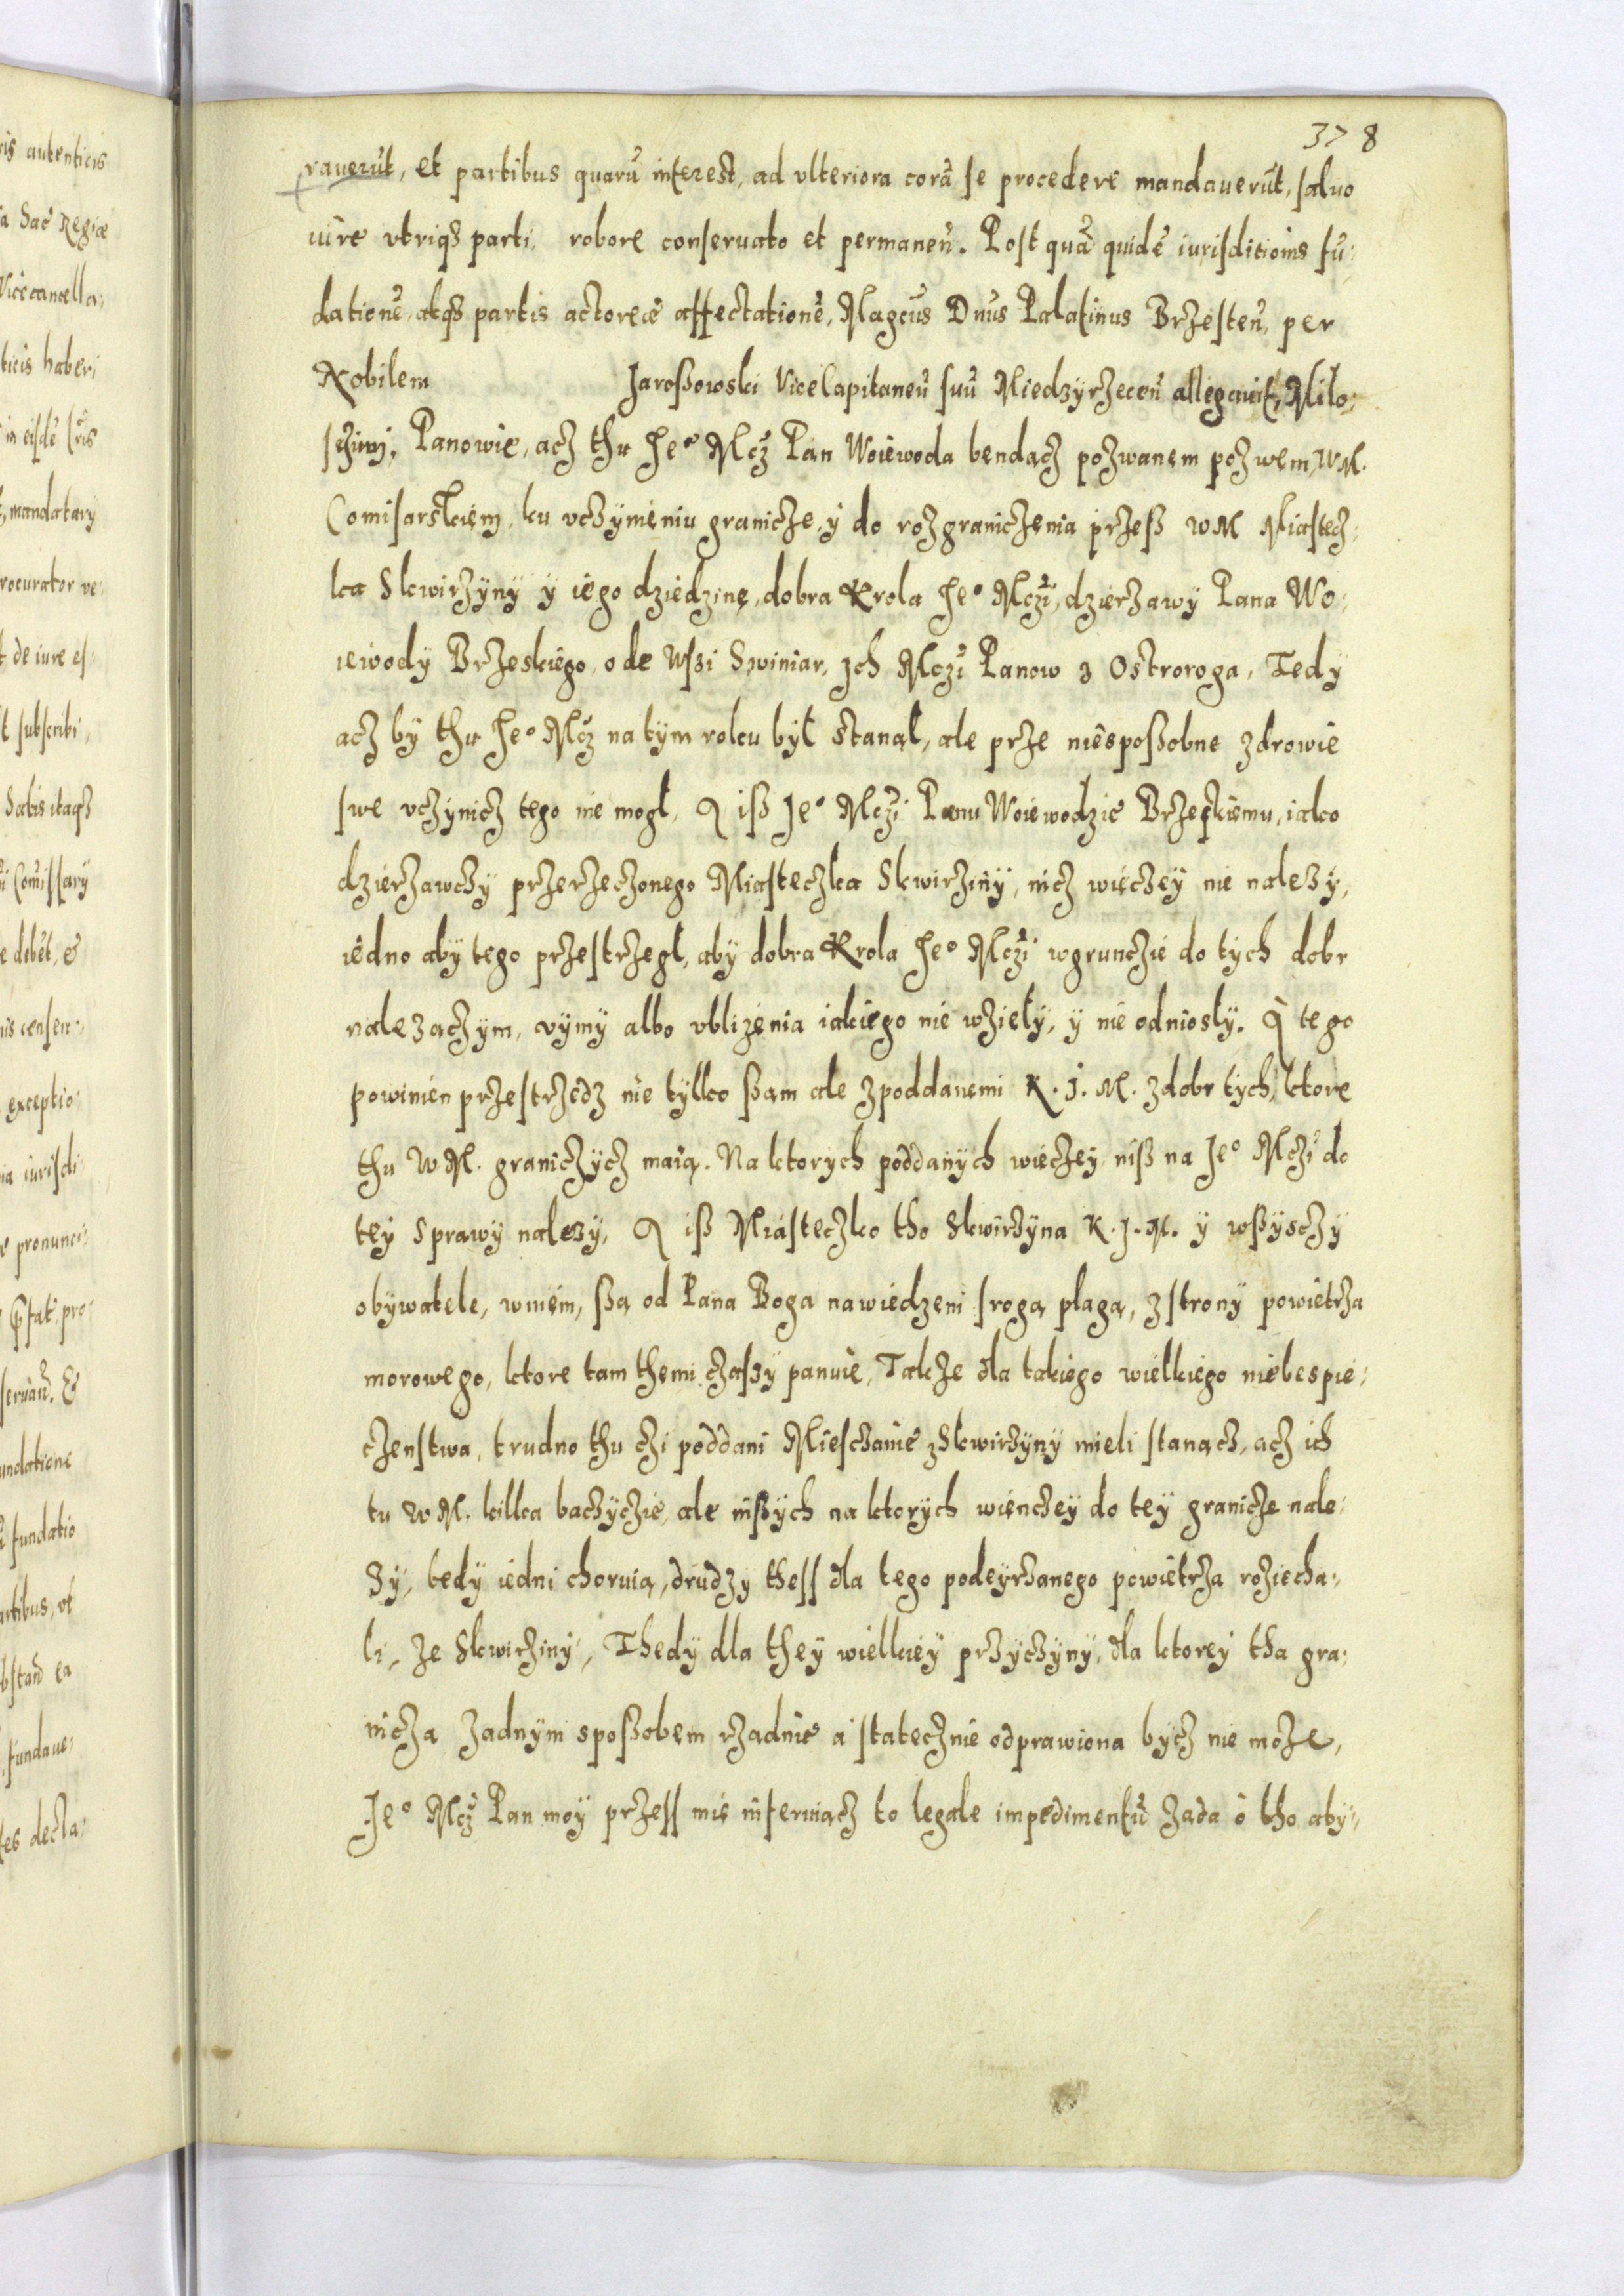 378
rauerūt, et partibus quarū interest, ad vlteriora corā se procedere mandauerūt, saluo
iure vtriqȝ parti, robore conseruato et permanen̄. Post quā quidē iurisditionis fū:
dationē, atqȝ partis actoreæ affectationē, Magcūs Dnūs Palatinus Brzesten̄, per
Nobilem Jaroßowski ViceCapitaneū suū Miedzyrzecen̄ allegauit, Miło:
sćziwi, Panowie, acz thu Je° Mcż Pan Woiewoda bendącz pozwanem pozwem, W.M.
Comisarskiem, ku vczynieniu granicze, y do rozgraniczenia przeß W M Miastecz:
ka Skwirzyny y iego dziedzinę, dobra Krola Je° Mczi, dzierzawy Pana Wo:
iewody Brzeskiego, ode Wsi Swiniar, Jch Mczi Panow z Ostroroga, Tedy
acz by thu Je° Mcż na tym roku był stanął, ale prze niesposobne zdrowie
swe vczynicz tego nie mogł, A iß Je° Mczi Panu Woiewodzie Brzeskiemu, iako
dzierzawczy przerzeczonego Miasteczka Skwirziny, nicz wieczey nie należy,
iedno aby tego przestrzegł, aby dobra Krola Je° Mczi w gruncżie do tych dobr
należaczym, vymy albo vbliżenia iakiego nie wzieły, y nie odniosły. A tego
powinien przestrzedz nie tylko ßam ale z poddanemi K. J. M. z dobr tych, ktore
thu W M. granicżycz maią. Na ktorych poddanych wieczey niß na Je° Mczi do
tey sprawy należy, A iß Miasteczko tho Skwirzyna K. J. M. y wßysczy
obywatele, w niem, ßą od Pana Boga nawiedzeni srogą plagą, z strony powietrza
morowego, ktore tam themi czasy panuie, Takze dla takiego wielkiego niebespie:
czenstwa, trudno thu czi poddani Mieszczanie z Skwirzyny mieli stanącz, acz ich
tu W M. kilka baczyczie, ale inßych na ktorych wienczey do tey granicze nale:
ży, tedy iedni choruią, drudzy thess dla tego podeyrzanego powietrza roziecha:
li, ze Skwirziny, Thedy dla they wielkiey przyczyny, dla ktorey tha gra:
nicza żadnym sposobem rządnie a statecznie odprawiona bycz nie może,
Je° Mcż Pan moy przess mie inseruiącz to legale impedimentū żada o tho aby: